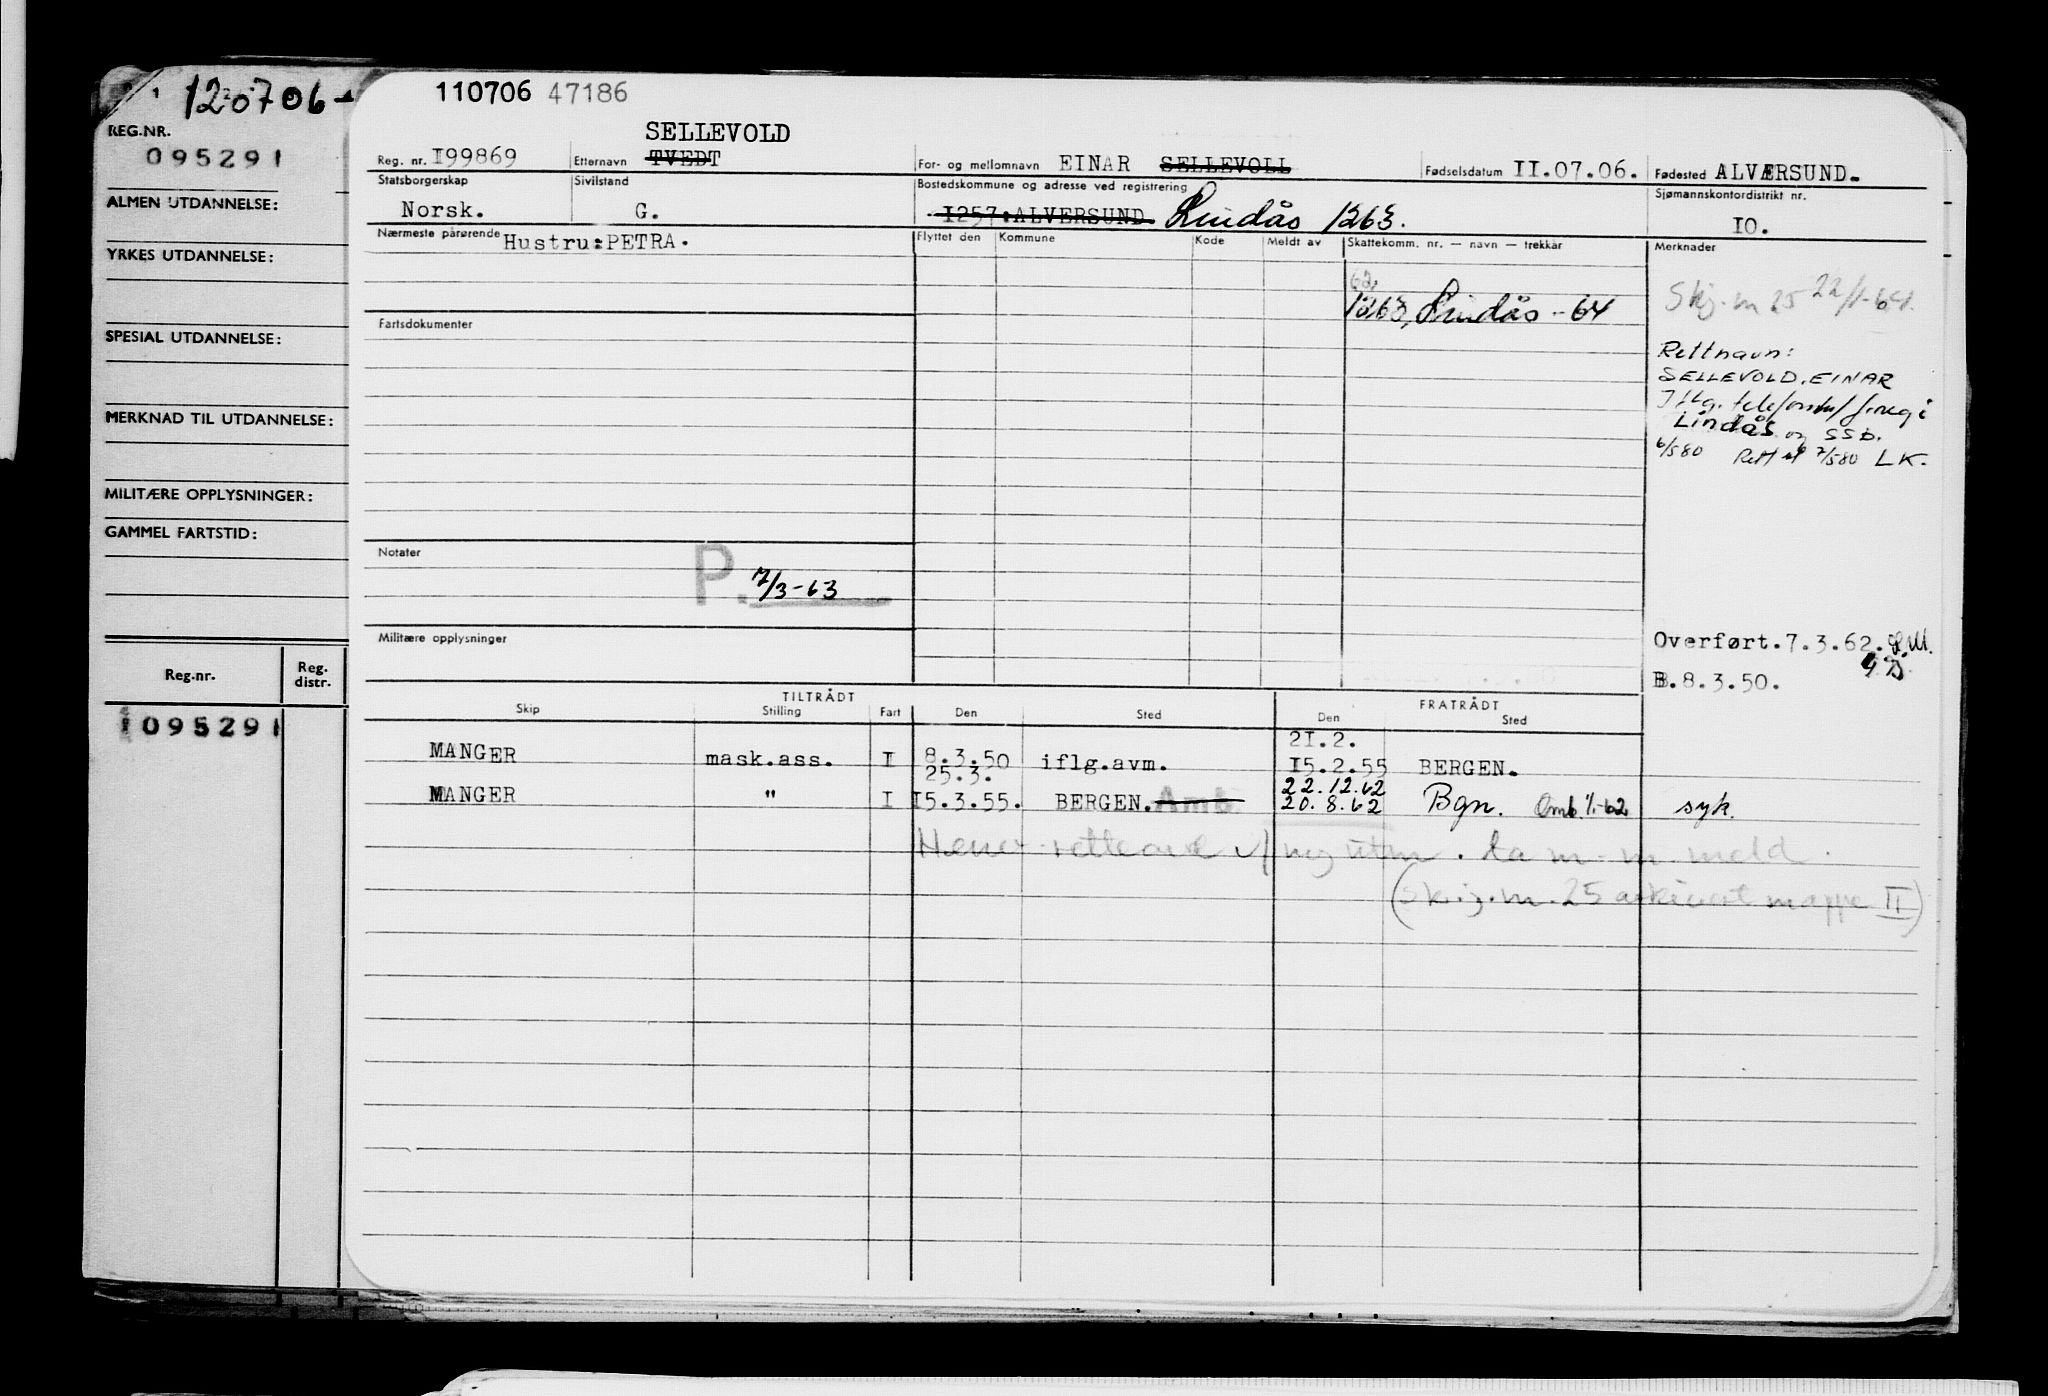 120706-
REG.NR.
095291
ALMEN UTDANNELSE:
YRKES UTDANNELSE:
SPESIAL UTDANNELSE:
MERKNAD TIL UTDANNELSE:
MILITÆRE OPPLYSNINGER:
GAMMEL FARTSTID:
Reg.nr. Reg. distr.
095291
110706 47186
SELLEVOLD
Reg. nr. I99869 Etternavn TVEDT For- og mellomnavn EINAR SELLEVOLL Fødselsdatum II.07.06. Fødested ALVÆRSUND.
Statsborgerskap Sivilstand Bostedskommune og adresse ved registrering Sjømannskontordistrikt nr.
Norsk. G. I257:ALVERSUND Lindås 1263. IO.
Nærmeste pårørende Hustru:PETRA. Flyttet den Kommune Kode Meldt av Skattekomm. nr. — navn — trekkår Merknader
62,
1263, Lindås - 64
Skj. m 25 22/1-64.
Fartsdokumenter
Rett navn:
SELLEVOLD, EINAR
Iflg. telefon m/f.reg i
Lindås og SSB.
6/580 Rett et 7/580 LK.
Notater
P. 7/3-63
Militære opplysninger
Overført.7.3.62.
B.8.3.50.
TILTRÅDT FRATRÅDT
Skip Stilling Fart Den Sted Den Sted
21.2.
MANGER mask.ass. I 8.3.50 iflg.avm. I5.2.55 BERGEN.
25.3. 22.12.62
MANGER " I I5.3.55. BERGEN. Amb 20.8.62 Bgn. Omb. 1/1-62 syk.
utm. fa m. m. meld.
(skj.m.25 arkivert mappe II)